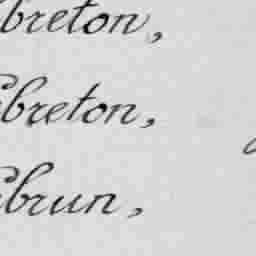 breton,
ebreton,
ebrun,